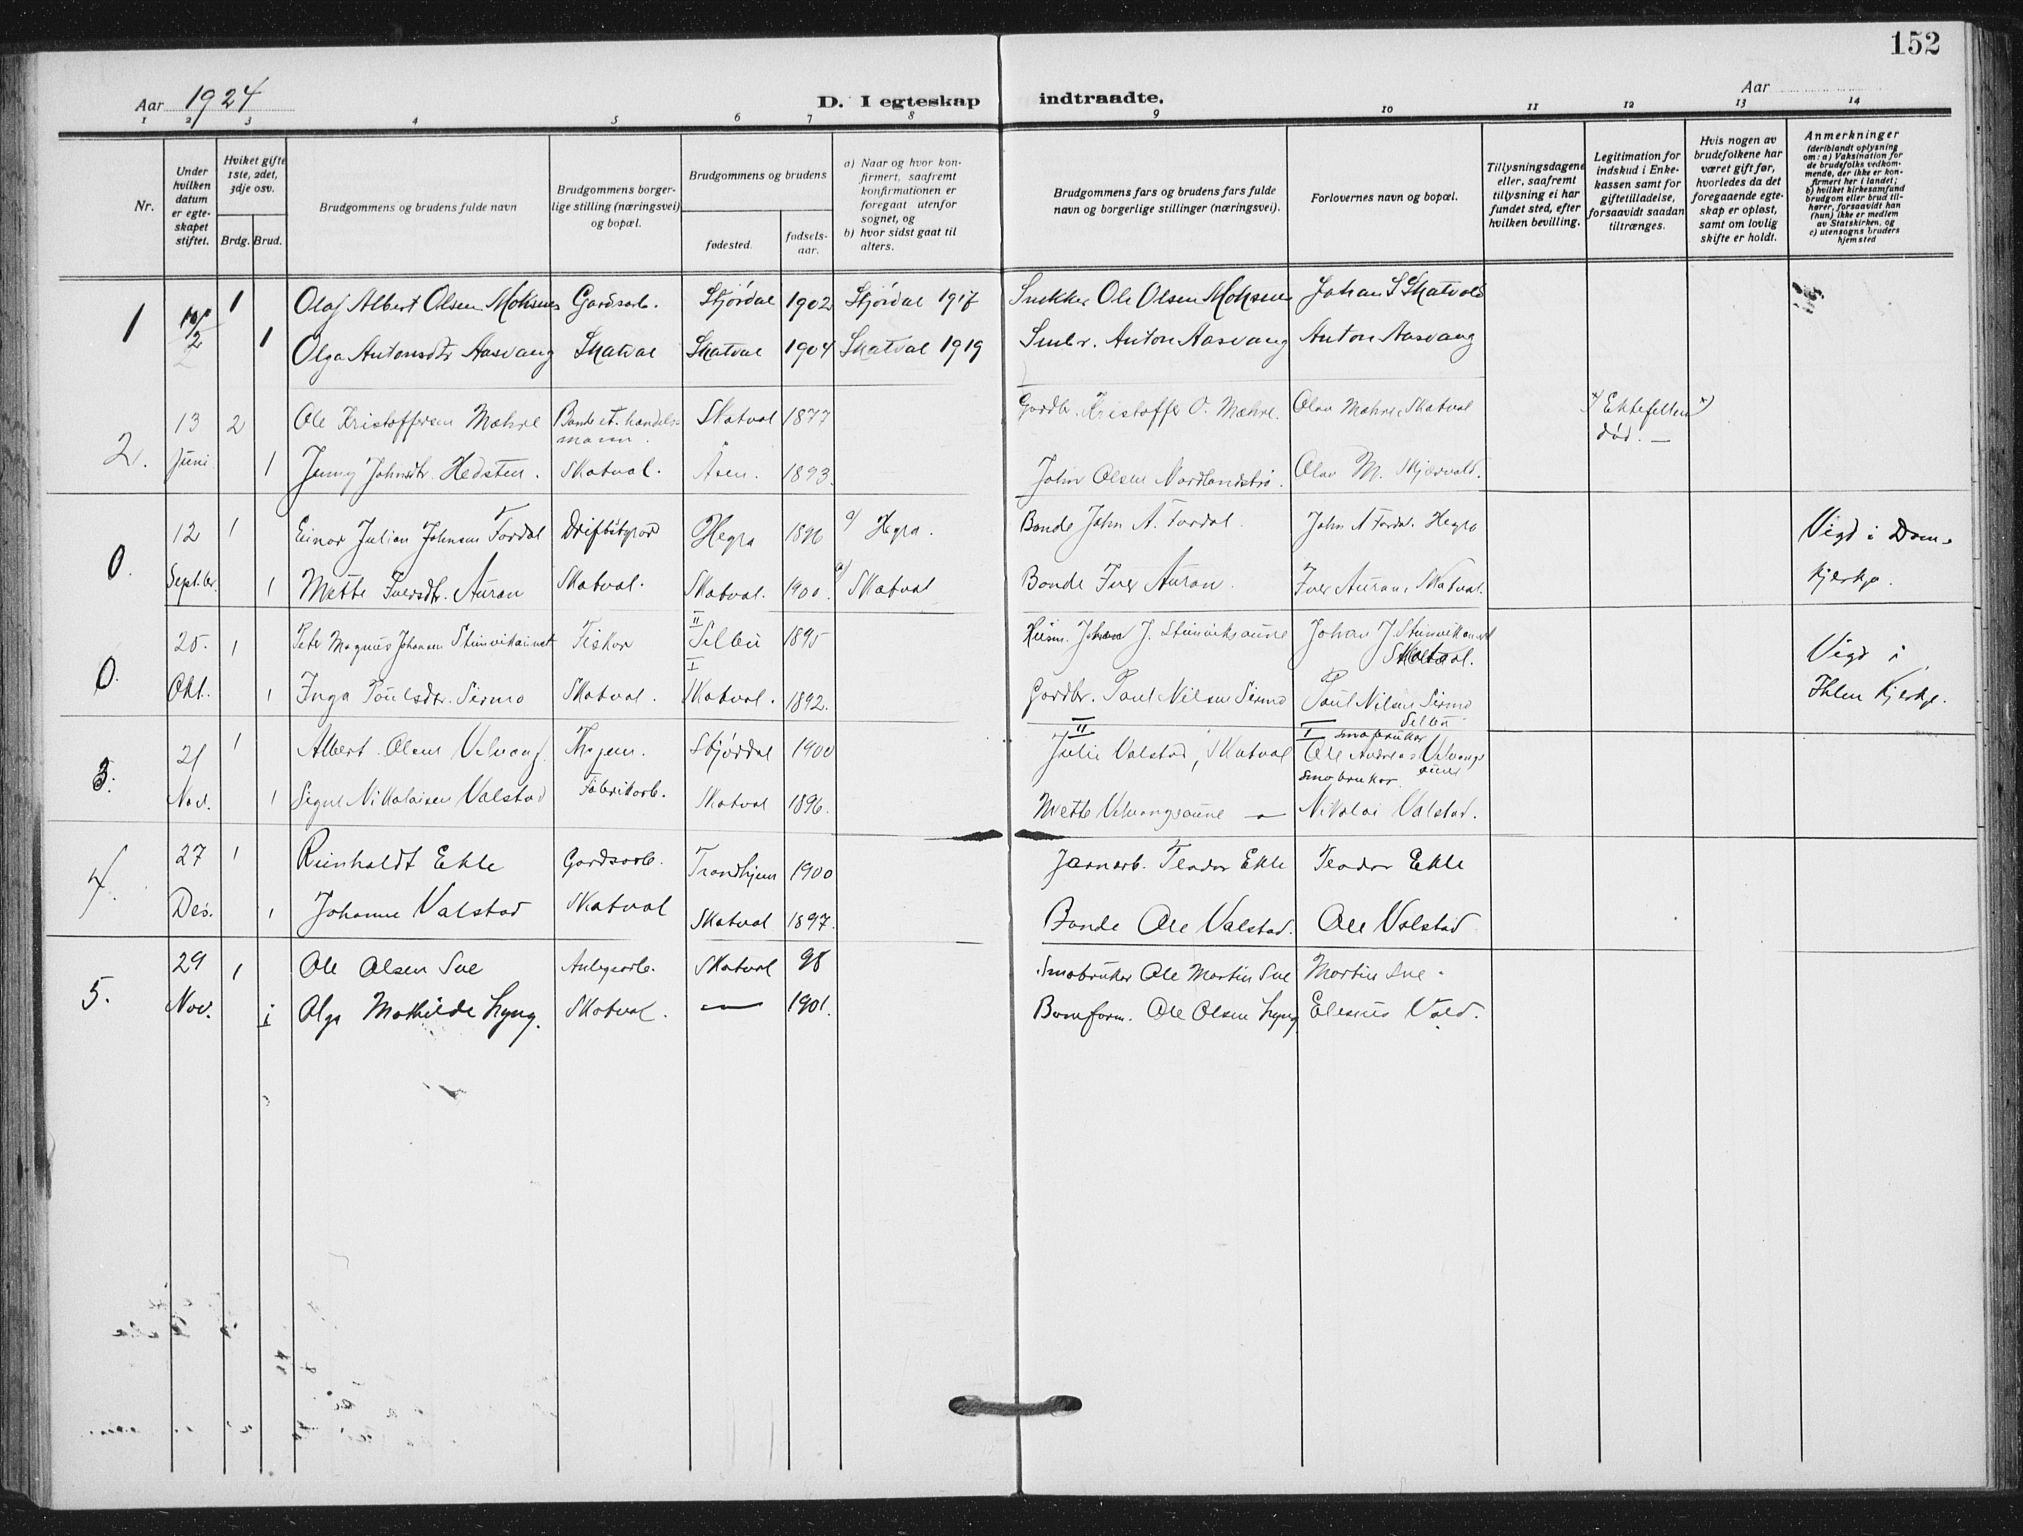 152
Aar 1924
D. I egteskap indtraadte.
Aar
1 2 3 4 5 6 7 8 9 10 11 12 13 14
Nr.
Under hvilken datum er egteskapet stiftet.
Hvilket gifte 1ste, 2det, 3dje osv.
Brdg. Brud.
Brudgommens og brudens fulde navn
Brudgommens borgerlige stilling (næringsvei) og bopæl.
Brudgommens og brudens
fødested.
fødselsaar.
a) Naar og hvor konfirmert, saafremt konfirmationen er foregaat utenfor sognet, og
b) hvor sidst gaat til alters.
Brudgommens fars og brudens fars fulde navn og borgerlige stillinger (næringsvei).
Forlovernes navn og bopæl.
Tillysningsdagene eller, saafremt tillysning ei har fundet sted, efter hvilken bevilling.
Legitimation for indskud i Enkekassen samt for giftetilladelse, forsaavidt saadan tiltrænges.
Hvis nogen av brudefolkene har været gift før, hvorledes da det foregaaende egteskap er opløst, samt om lovlig skifte er holdt.
Anmerkninger
(deriblandt oplysning om: a) Vaksination for de brudefolks vedkommende, der ikke er konfirmert her i landet; b) hvilket kirkesamfund brudgom eller brud tilhører, forsaavidt han (hun) ikke er medlem av Statskirken, og c) utensogns bruders hjemsted
1 1 Olaf Albert Olsen Moksnes Gardsarb. Stjørdal 1902 Stjørdal 1917 Snekker Ole Olsen Moksnes Johan S Skatvold
2 1 Olga Antonsdtr Aasvang Skatval Skatval 1904 Skatval 1919 Smbr. Anton Aasvang Anton Aasvang
2. 13 2 Ole Kristoffersen Mæhre Bonde et. handelsmann. Skatval 1877 Gardbr. Kristoffer O. Mæhre. Olav Mæhre, Skatval Ektefellen død. —
Juni 1 Jenny Johnsdtr. Hedsten. Skatval. Åsen. 1893. John Olsen Nordlandstrø. Olav M. Skjervold.
0. 12 1 Einar Julian Johnsen Fordal Driftbstyrar Hegra 1896 a/ Hegra. Bonde John A. Fordal. John A Fordal Hegra Vigd i Dom-
Septbr. 1 Mette Iversdtr. Auran Skatval. Skatval. 1900. a/ Skatval Bonde Iver Auran. Iver Auran, Skatval. kjerkja.
0. 25. 1 Peter Magnus Johansen Steinvikaunet Fiskar II Selbu 1895 Husm. Johan J. Steinviksaune Johan J. Steinvikaunet Skatval. Vigd i
Okt. 1 Inga Paulsdtr. Sirmo Skatval. I Skatval. 1892. Gardbr. Paul Nilsen Sirmo Paul Nilsen Sirmo Selbu Ihlen kjerkje.
3. 21 1 Albert Olsen Velvang Thojem. Stjørdal 1900 II Julie Valstad, Skatval I småbruker Ole Andreas Velvangsaune
Nov. 1 Signe Nikolaisen Valstad Fabrikarb. Skatval 1896. Mette Velvangsaune — småbrukar. Nikolai Valstad.
4. 27 1 Reinholdt Ekle Gardsarb. Trondhjem 1900 Jarnarb. Teodor Ekle Teodor Ekle
Des. 1 Johanne Valstad Skatval Skatval 1897. Bonde Ole Valstad. Ole Valstad
5. 29 1 Ole Olsen Sve Anlegsarb. Skatval 98 Småbruker Ole Martin Sve Martin Sve.
Nov. 1 Olga Mathilde Lyng. Skatval. — 1901. Banform. Ole Olsen Lyng Elenus Vold.